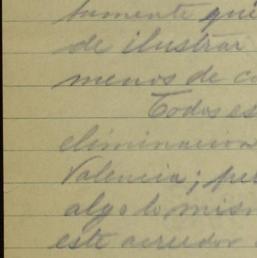 tamente qué
de ilustrar
menos de co
Todos es
eliminacion
Valencia; per
algo lo mism
este acreedor